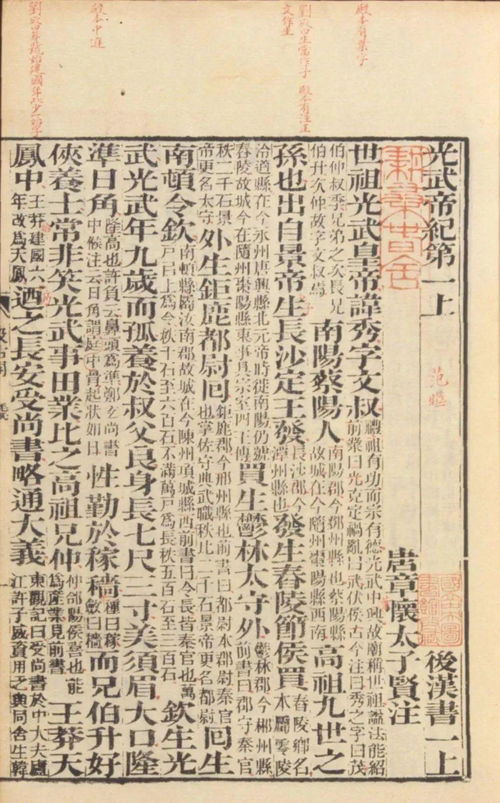 光武帝紀第一上　後漢書一上
范曄
唐章懷太子賢注
世祖光武皇帝諱秀字文叔禮祖有功而宗有德光武中興故廟稱世祖諡法能紹前業曰光克定禍亂曰武伏侯古今注曰秀之字曰茂
伯仲叔季兄弟之次長兄伯升次仲故字文叔焉南陽蔡陽人南陽郡今鄧州縣也蔡陽縣故城在今隨州棗陽縣西南高祖九世之
孫也出自景帝生長沙定王發長沙郡今潭州縣也發生舂陵節侯買舂陵鄉名本屬零陵
泠道縣在今永州唐興縣北元帝時徙南陽仍號舂陵故城今在隨州棗陽縣東事具宗室四王傳買生鬱林太守外鬱林郡今郴州縣前書曰郡守秦官
秩二千石景帝更名太守外生鉅鹿都尉回鉅鹿郡今邢州縣也前書曰都尉本郡尉秦官也掌佐守典武職秩比二千石景帝更名都尉回生
南頓令欽南頓縣屬汝南郡故城在今陳州項城縣西前書曰令長皆秦官也萬戶已上為令秩千石至六百石不滿萬戶為長秩五百石至三百石欽生光
武光武年九歲而孤養於叔父良身長七尺三寸美須眉大口隆
準日角隆高也許負云鼻頭為準鄭玄尚書中候注云日角謂庭中骨起狀如日性勤於稼穡種曰稼斂曰穡而兄伯升好
俠養士常非笑光武事田業比之高祖兄仲仲郃陽侯喜也能為產業見前書王莽天
鳳中王莽建國六年改為天鳳迺之長安受尚書略通大義東觀記曰受尚書於中大夫廬江許子威資用乏與同舍生韓